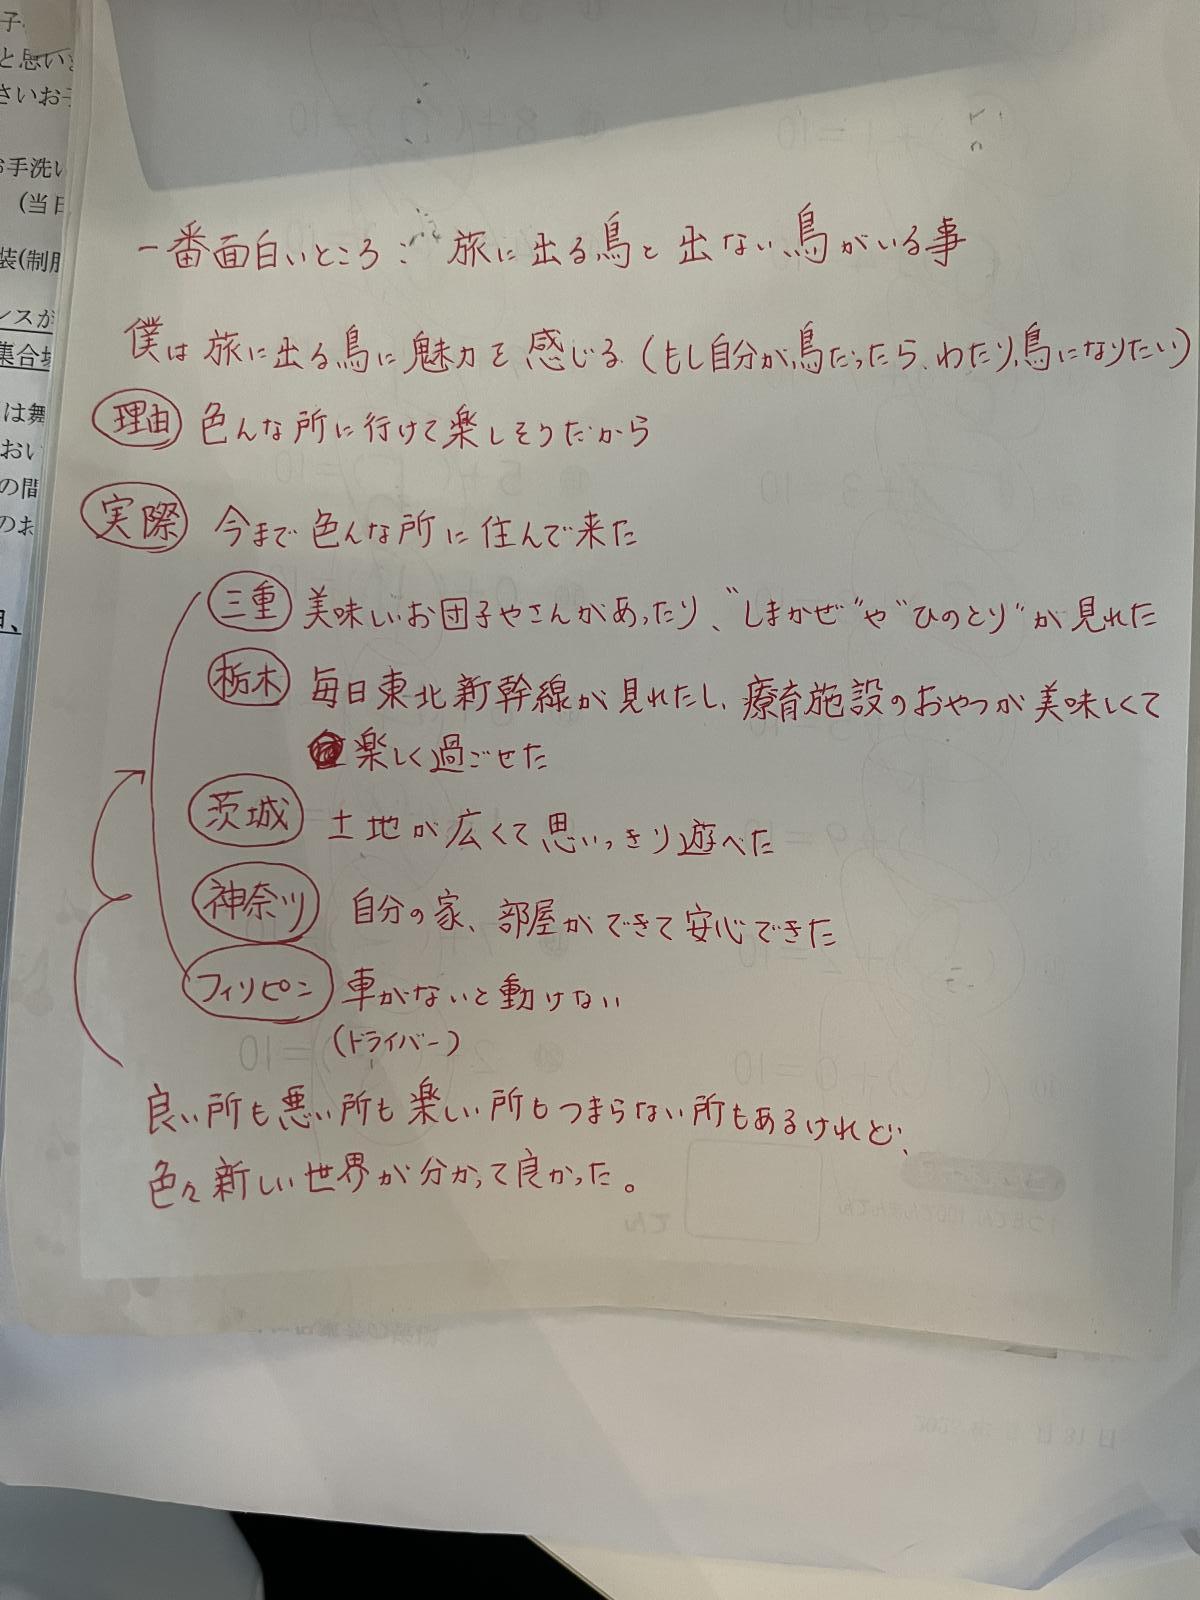 一番面白いところ： 旅に出る鳥と出ない鳥がいる事
僕は旅に出る鳥に魅力を感じる（もし自分が鳥だったら、わたり鳥になりたい）
理由 色んな所に行けて楽しそうだから
実際 今まで色んな所に住んで来た
三重 美味しいお団子やさんがあったり、"しまかぜ"や"ひのとり"が見れた
栃木 毎日東北新幹線が見れたし、療育施設のおやつが美味しくて
楽しく過ごせた
茨城 土地が広くて思いっきり遊べた
神奈川 自分の家、部屋ができて安心できた
フィリピン 車がないと動けない
（ドライバー）
良い所も悪い所も楽しい所もつまらない所もあるけれど、
色々新しい世界が分かって良かった。
と思い
さいお子
お手洗い
（当日
装(制服
ンスが
集合場
は舞
おい
の間
のお